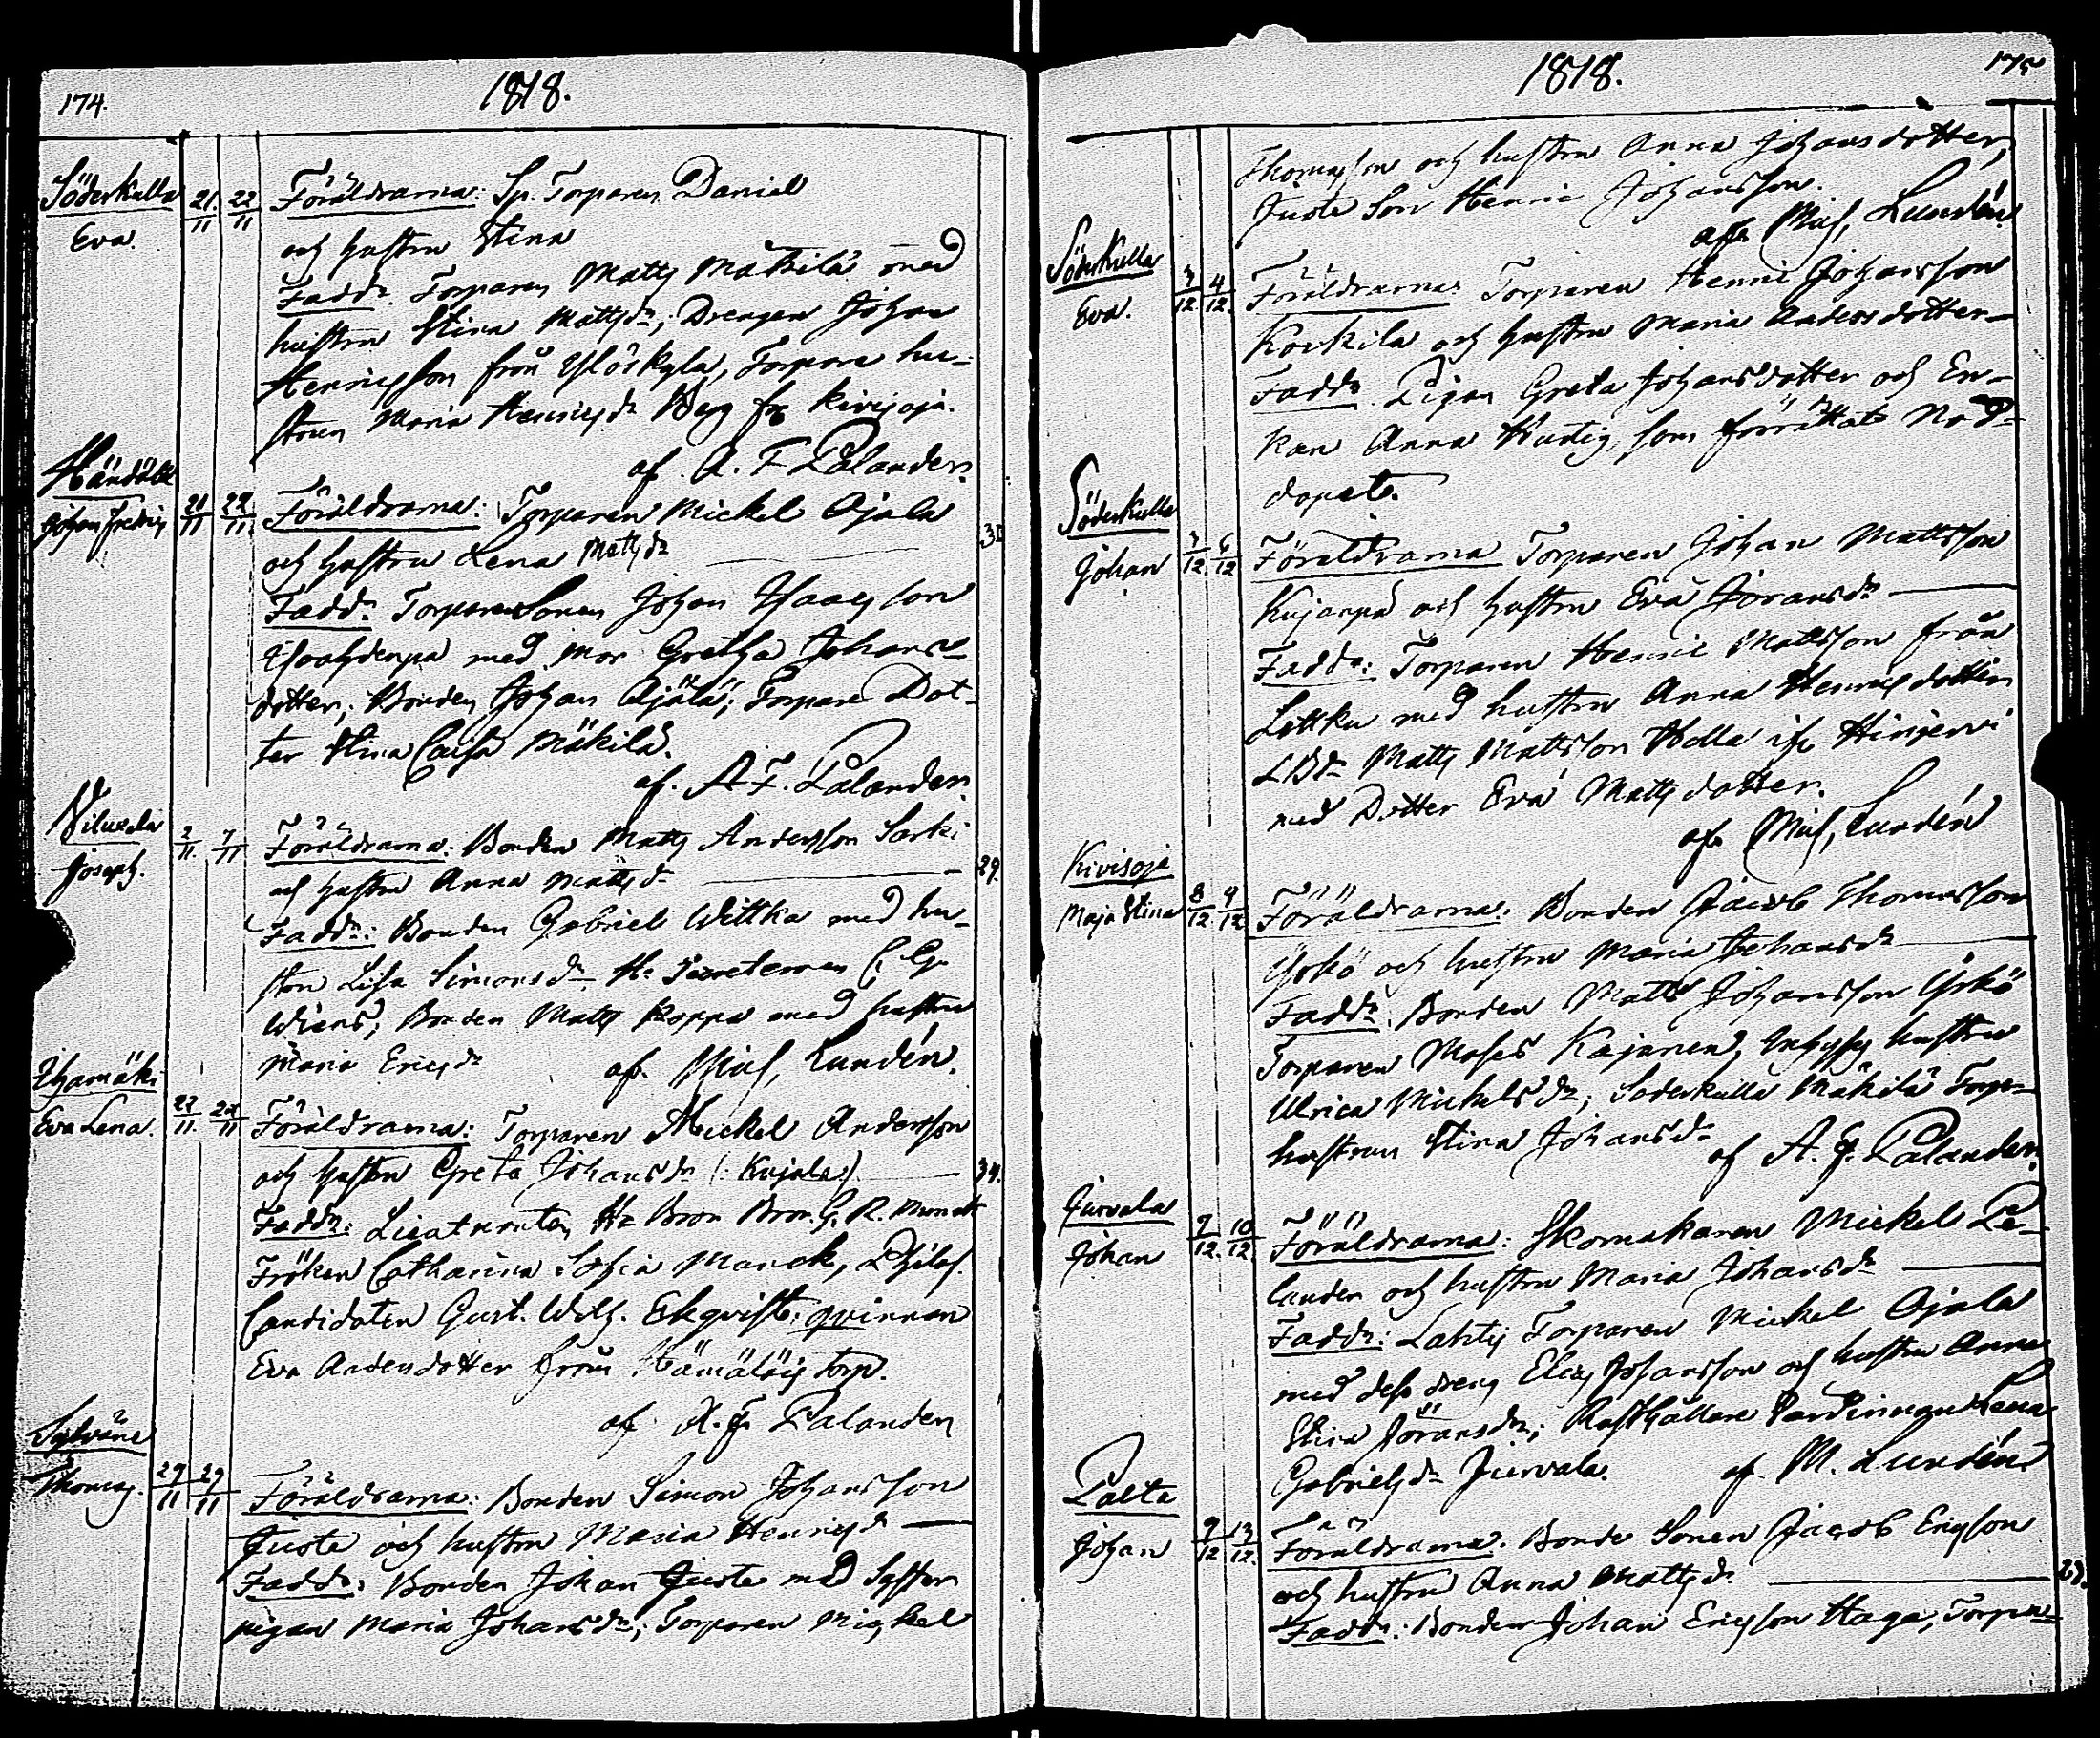 174.
1818.
Söderkulla
Eva
21/11 22/11
Föräldrarna: Sp. Torparen Daniel
och hustru Stina
Fadd. Torparen Matts Mäkilä med
hustru Stina Mattsdr; Drengen Johan
Henricsson från Ylöskylä, Torpare hu-
strun Maria Henricsdr Berg fr Kivisoja.
af. A. F. Palander.
Johan Fredric
21/11 22/11
Föräldrarna: Torparen Mickel Ojala
och hustru Lena Mattsdr
Fadd. Torpare Sonen Johan Isaacsson
med mor Gretha Johans-
dotter; Bonden Johan Ojala; Torpare Dot-
ter Stina Caisa Mäkilä.
af. A. F. Palander.
Joseph.
2/11 7/11
Föräldrarna: Bonden Matts Andersson Sarki
och hustru Anna Mattsdr
29.
Fadd: Bonden Gabriel Wittka med hu-
stru Lisa Simonsdr,
Bonden Matts Koppa med hustru
Maria Ericsdr
af. Mich. Lundén.
Eva Lena.
22/11 22/11
Föräldrarna: Torparen Mickel Andersson
och hustru Greta Johansdr (: Kujala)
34.
Fadd: Lieutnanten Hr Bron Bron G. R. Munck
Fröken Catharina Sofia Munck, Philos.
Candidaten Gust. Wilh. Ekqvist; qvinnan
Eva Andersdotter från torp.
af. A. F. Palander
Thomas.
29/11 29/11
Föräldrarna: Bonden Simon Johansson
Juote och hustru Maria Henricsd
Fadd: Bonden Johan Juote med Syster
pigan Maria Johansdr; Torparen Michel
1818.
175
Thomasson och hustru Anna Johansdotter,
Juote Son Henric Johansson.
af. Mich. Lundén.
Söderkulla
Eva.
3/12 4/12
Föräldrarna: Torparen Henric Johansson
Korkila och hustru Maria Andersdotter
Fadd. Pigan Greta Johansdotter och En-
kan Anna Hurtig, som förrättat Nöd-
dopet.
Söderkulla
Johan
3/12 6/12
Föräldrarna Torparen Johan Mattsson
Kujanpä och hustru Eva Jöransdr
Fadd: Torparen Henric Mattsson från
Lottku med hustru Anna Henricsdotter
Matts Mattsson Wolla
med Dotter Eva Mattsdotter.
af. Mich. Lundén
Kivisoja
Maja Stina
8/12 9/12
Föräldrarna: Bonden Jacob Thomasson
Yrkö och hustru Maria Johansdr
Fadd. Bonden Matts Johansson Yrkö
Torparen Moses Kajanen, hustru
Ulrica Michelsdr; Söderkulla Mäkilä Torp-
hustrun Stina Johansdr
af A. F. Palander.
Jurvala
Johan
9/12 10/12
Föräldrarna: Skomakaren Mickel Pe-
lander och hustru Maria Johansdr
Fadd: Lahtis Torparen Mickel Ojala
med dess dreng Elias Johansson och hustru Anna
Stina Jöransdr; Rusthållare Lena
Gabrielsdr Jurvala.
af M. Lundén
Palta
Johan
9/12 13/12
Föräldrarna: Bonde Sonen Jacob Ericsson
och hustru Anna Mattsdr
29.
Fadd: Bonden Johan Ericsson Haga, Torpa-